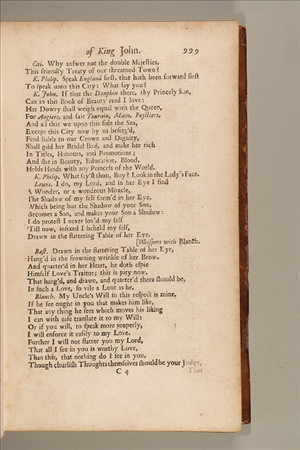 of King John. 999
Citi. Why answer not the double Majesties,
This friendly Treaty of our threatned Town?
K. Philip. Speak England first, that hath been forward first
To speak unto this City: What say you?
K. John. If that the Dauphin there, thy Princely Son,
Can in this Book of Beauty read I love:
Her Dowry shall weigh equal with the Queen,
For Angiers, and fair Tourain, Main, Poictiers,
And all that we upon this side the Sea,
Except this City now by us besieg'd,
Find liable to our Crown and Dignity,
Shall gild her Bridal Bed, and make her rich
In Titles, Honours, and Promotions;
And she in Beauty, Education, Blood,
Holds Hands with any Princess of the World.
K. Philip. What say'st thou, Boy? Look in the Lady's Face.
Lewis. I do, my Lord, and in her Eye I find
A Wonder, or a wondrous Miracle,
The Shadow of my self form'd in her Eye,
Which being but the Shadow of your Son,
Becomes a Son, and makes your Son a Shadow:
I do protest I never lov'd my self
'Till now, infixed I beheld my self,
Drawn in the flattering Table of her Eye.
[Whispers with Blanch.
Bast. Drawn in the flattering Table of her Eye,
Hang'd in the frowning wrinkle of her Brow,
And quarter'd in her Heart, he doth espie
Himself Love's Traitor; this is pity now,
That hang'd, and drawn, and quarter'd there should be,
In such a Love, so vile a Lout as he.
Blanch. My Uncle's Will in this respect is mine,
If he see ought in you that makes him like,
That any thing he sees which moves his liking
I can with ease translate it to my Will:
Or if you will, to speak more properly,
I will enforce it easily to my Love.
Further I will not flatter you my Lord,
That all I see in you is worthy Love,
Than this, that nothing do I see in you,
Though churlish Thoughts themselves should be your Judge,
C 4 That